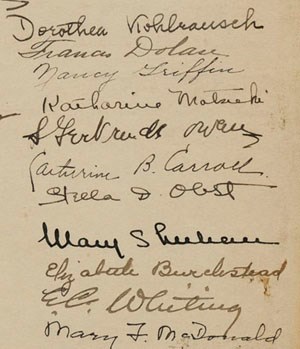 Dorothea Kohlrausch
Francis Dolan
Nancy Griffin
Katharine
S Gertrude Owens
Catherine B. Carroll
Stella D. Obst
Mary Sheehan
Elizabeth Burckstead
E.C. Whiting
Mary F. McDonald